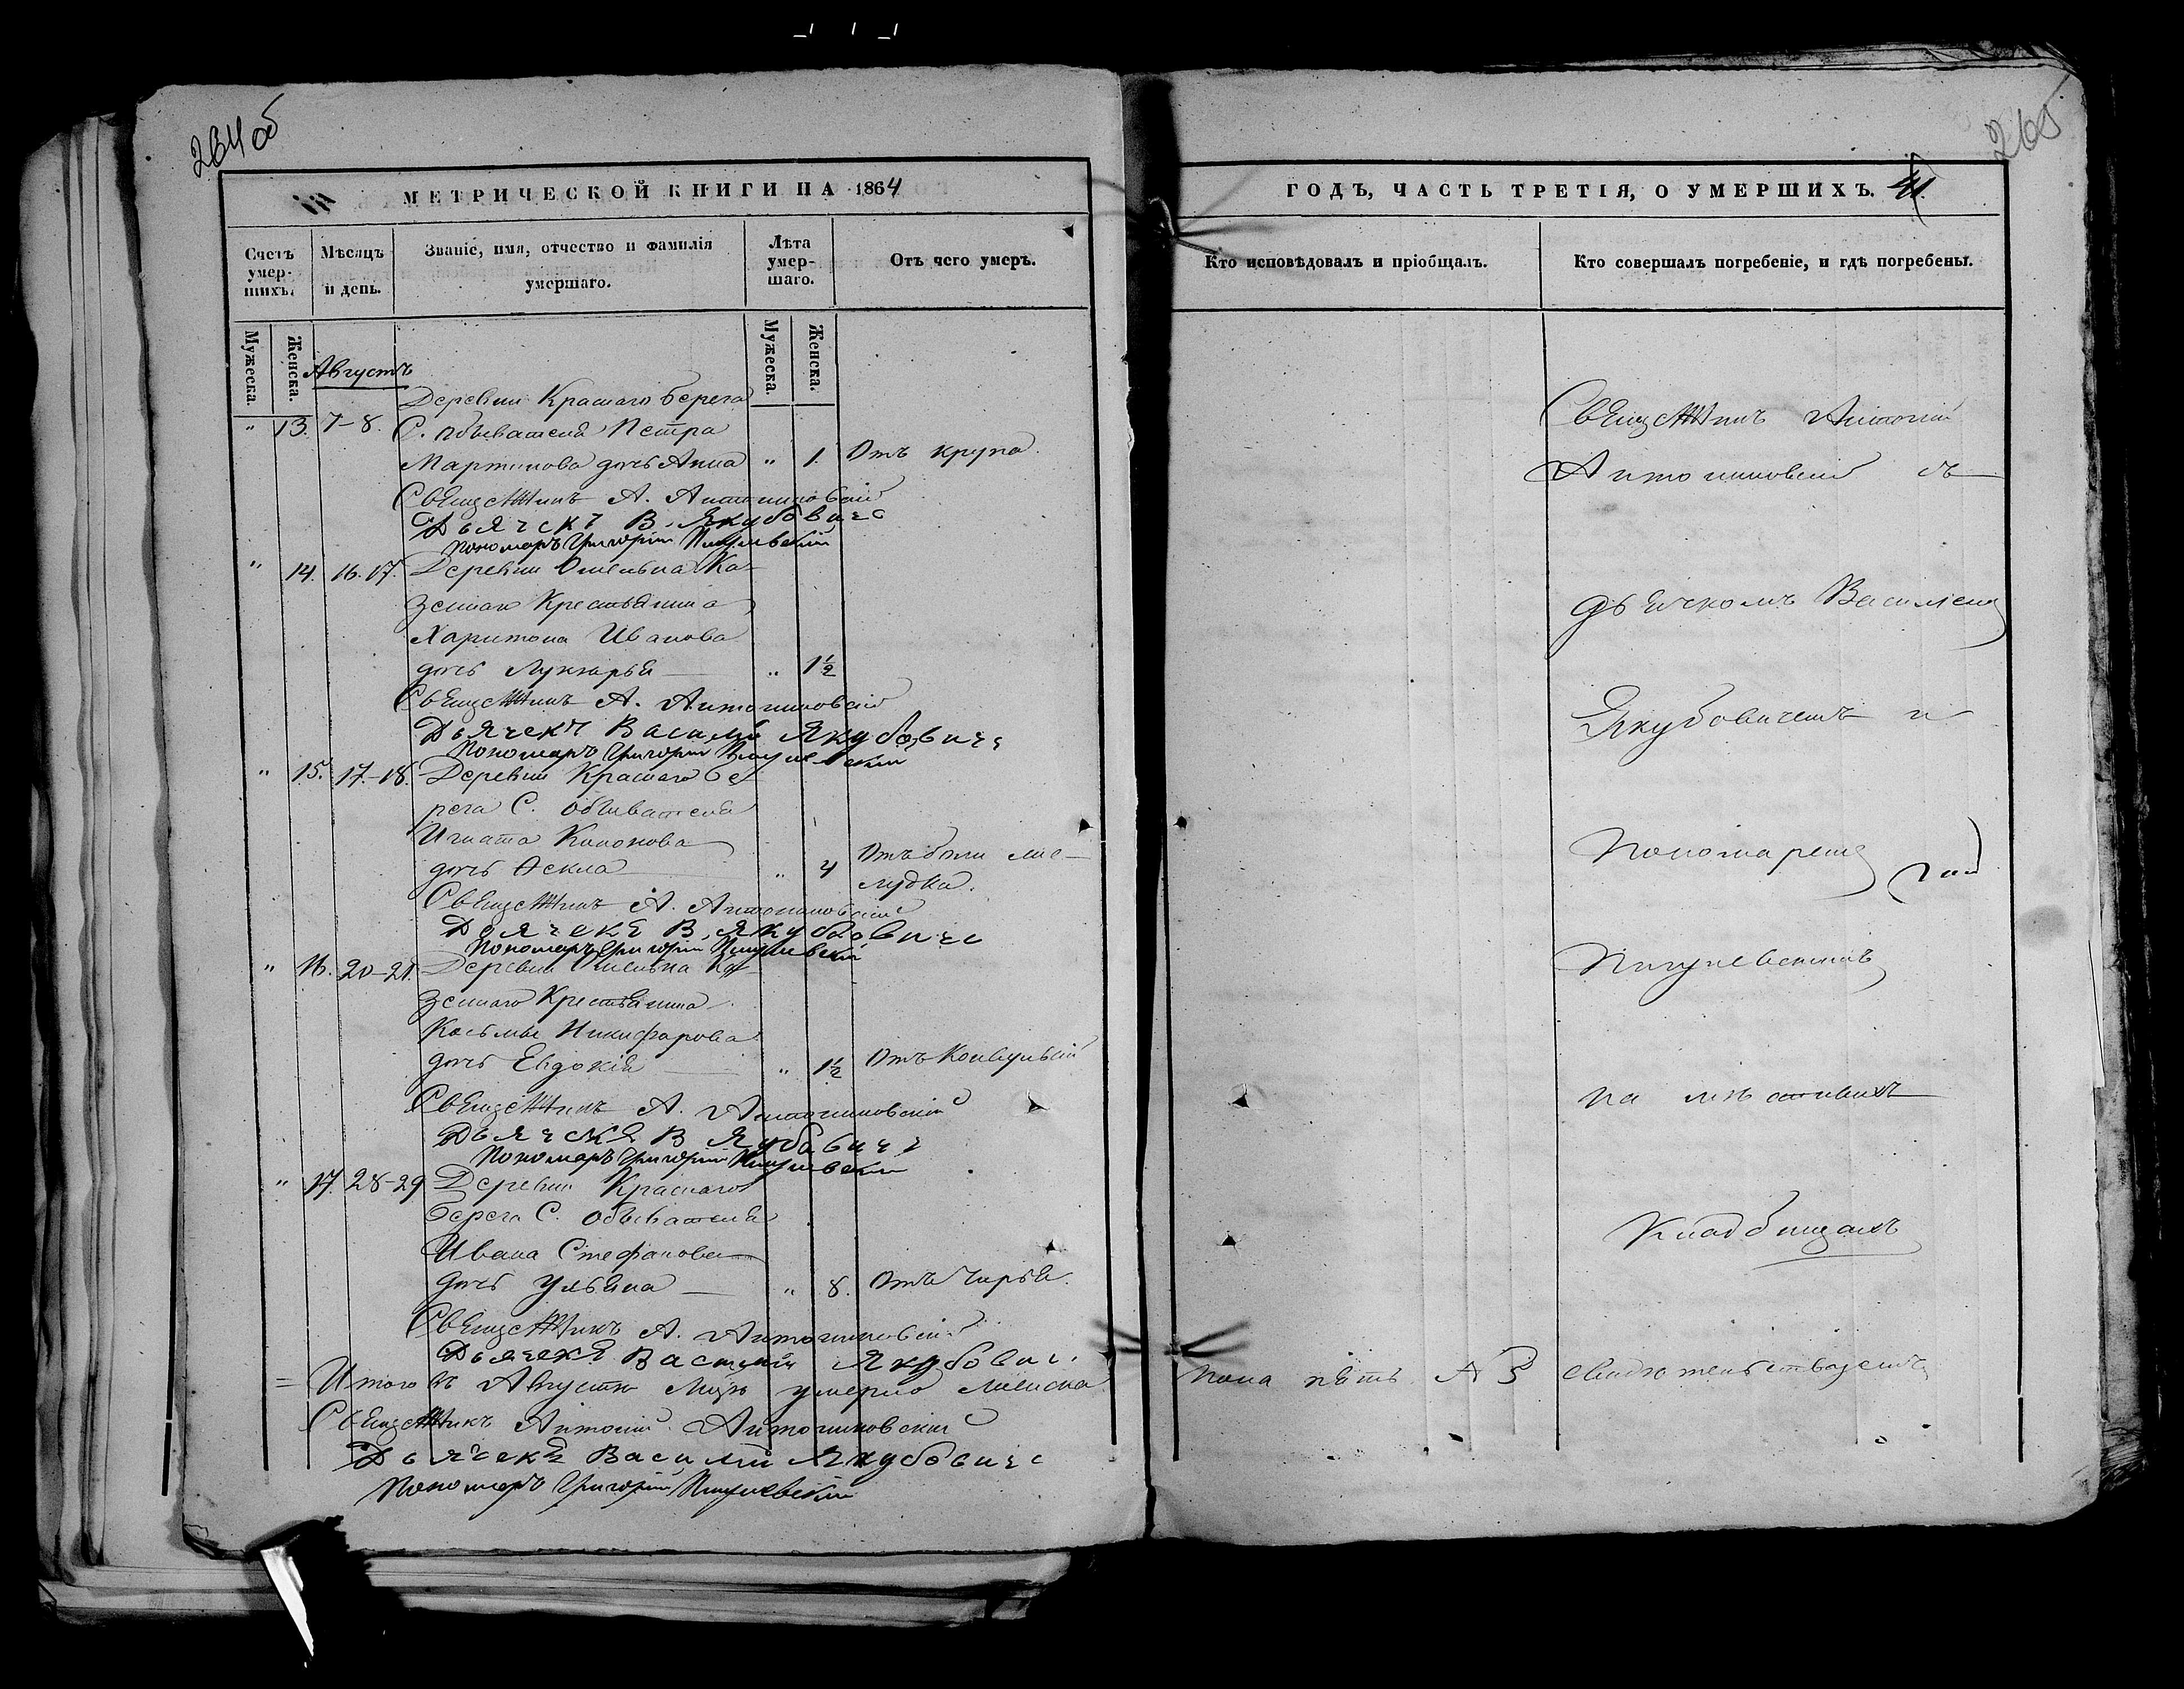 264 об
265
МЕТРИЧЕСКОЙ КНИГИ НА 1864
ГОДЪ, ЧАСТЬ ТРЕТІЯ, О УМЕРШИХЪ. 41
Счетъ умер-шихъ.
Мѣсяцъ и день.
Званіе, имя, отчество и фамилія умершаго.
Лѣта умер-шаго.
Отъ чего умеръ.
Кто исповѣдовалъ и пріобщалъ.
Кто совершалъ погребеніе, и гдѣ погребены.
Мужеска.
Женска.
Мужеска.
Женска.
Августъ
Деревни Краснаго берега
" 13. 7-8. С. обывателя Петра
Мартинова дочь Анна " 1. Отъ крупа.
Священникъ А. Антониновскій
Дьячекъ В. Якубовичъ
Пономарь Григорій
" 14. 16. 17. Деревни Ка-
зеннаго Крестьянина
Харитона Иванова
дочь Лукеарья " 1½
Священникъ А. Антониновскій
Дьячекъ Василій Якубовичъ
Пономарь Григорій
" 15. 17-18. Деревни Краснаго бе
рега С. обывателя
Игната Кононова
дочь Ѳекла " 4 Отъ боли же-
лудка.
Священникъ А. Антониновскій
Дьячекъ В. Якубовичъ
Пономарь Григорій
" 16. 20-21. Деревни Ка
зеннаго Крестьянина
Косьмы Никифарова
дочь Евдокія " 1½ Отъ Конвульсій
Священникъ А. Антониновскій
Дьячекъ В Якубовичъ
Пономарь Григорій
" 17. 28-29 Деревни Краснаго
берега С. Обывателя
Ивана Стефанова
дочь Ульяна " 8. Отъ Чирья.
Священникъ А. Антониновскій
Дьячекъ Василій Якубович.
= Итого въ Августѣ мцѣ умерло женска
Священникъ Антоній Антониновскій
Дьячекъ Василій Якубовичъ
Пономарь Григорій
Священникъ Антоній
Антониновскій съ
дьячкомъ Василіемъ
Якубовичемъ и
Пономаремъ
на мѣстныхъ
Кладбищахъ
пола пять № 5 свидѣтельствуемъ